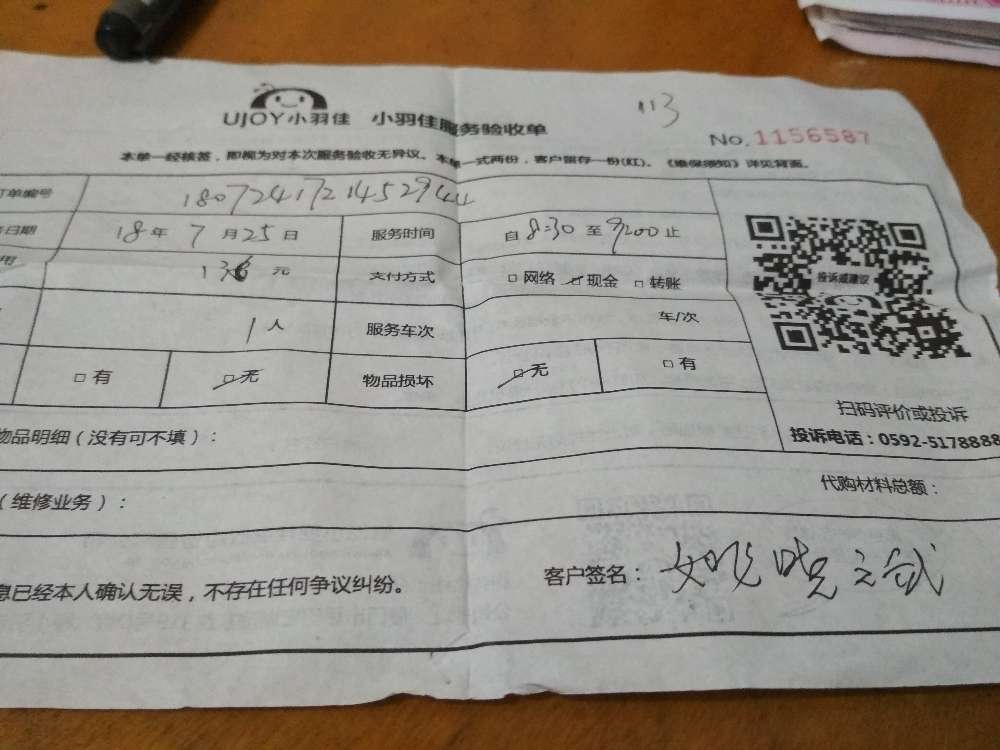 113
UJOY小羽佳 小羽佳服务验收单
No.1156587
本单一经核签，即视为对本次服务验收无异议。本单一式两份，客户留存一份(红)。《维保须知》详见背面。
订单编号 1807241721452944
日期 18年7月25日 服务时间 自8:30至9:00止
用 元 支付方式 □网络 ☑现金 □转账
投诉或建议
1人 服务车次 车/次
□有 ☑无 物品损坏 ☑无 □有
扫码评价或投诉
物品明细（没有可不填）：
投诉电话：0592-5178888
（维修业务）： 代购材料总额：
息已经本人确认无误，不存在任何争议纠纷。 客户签名：